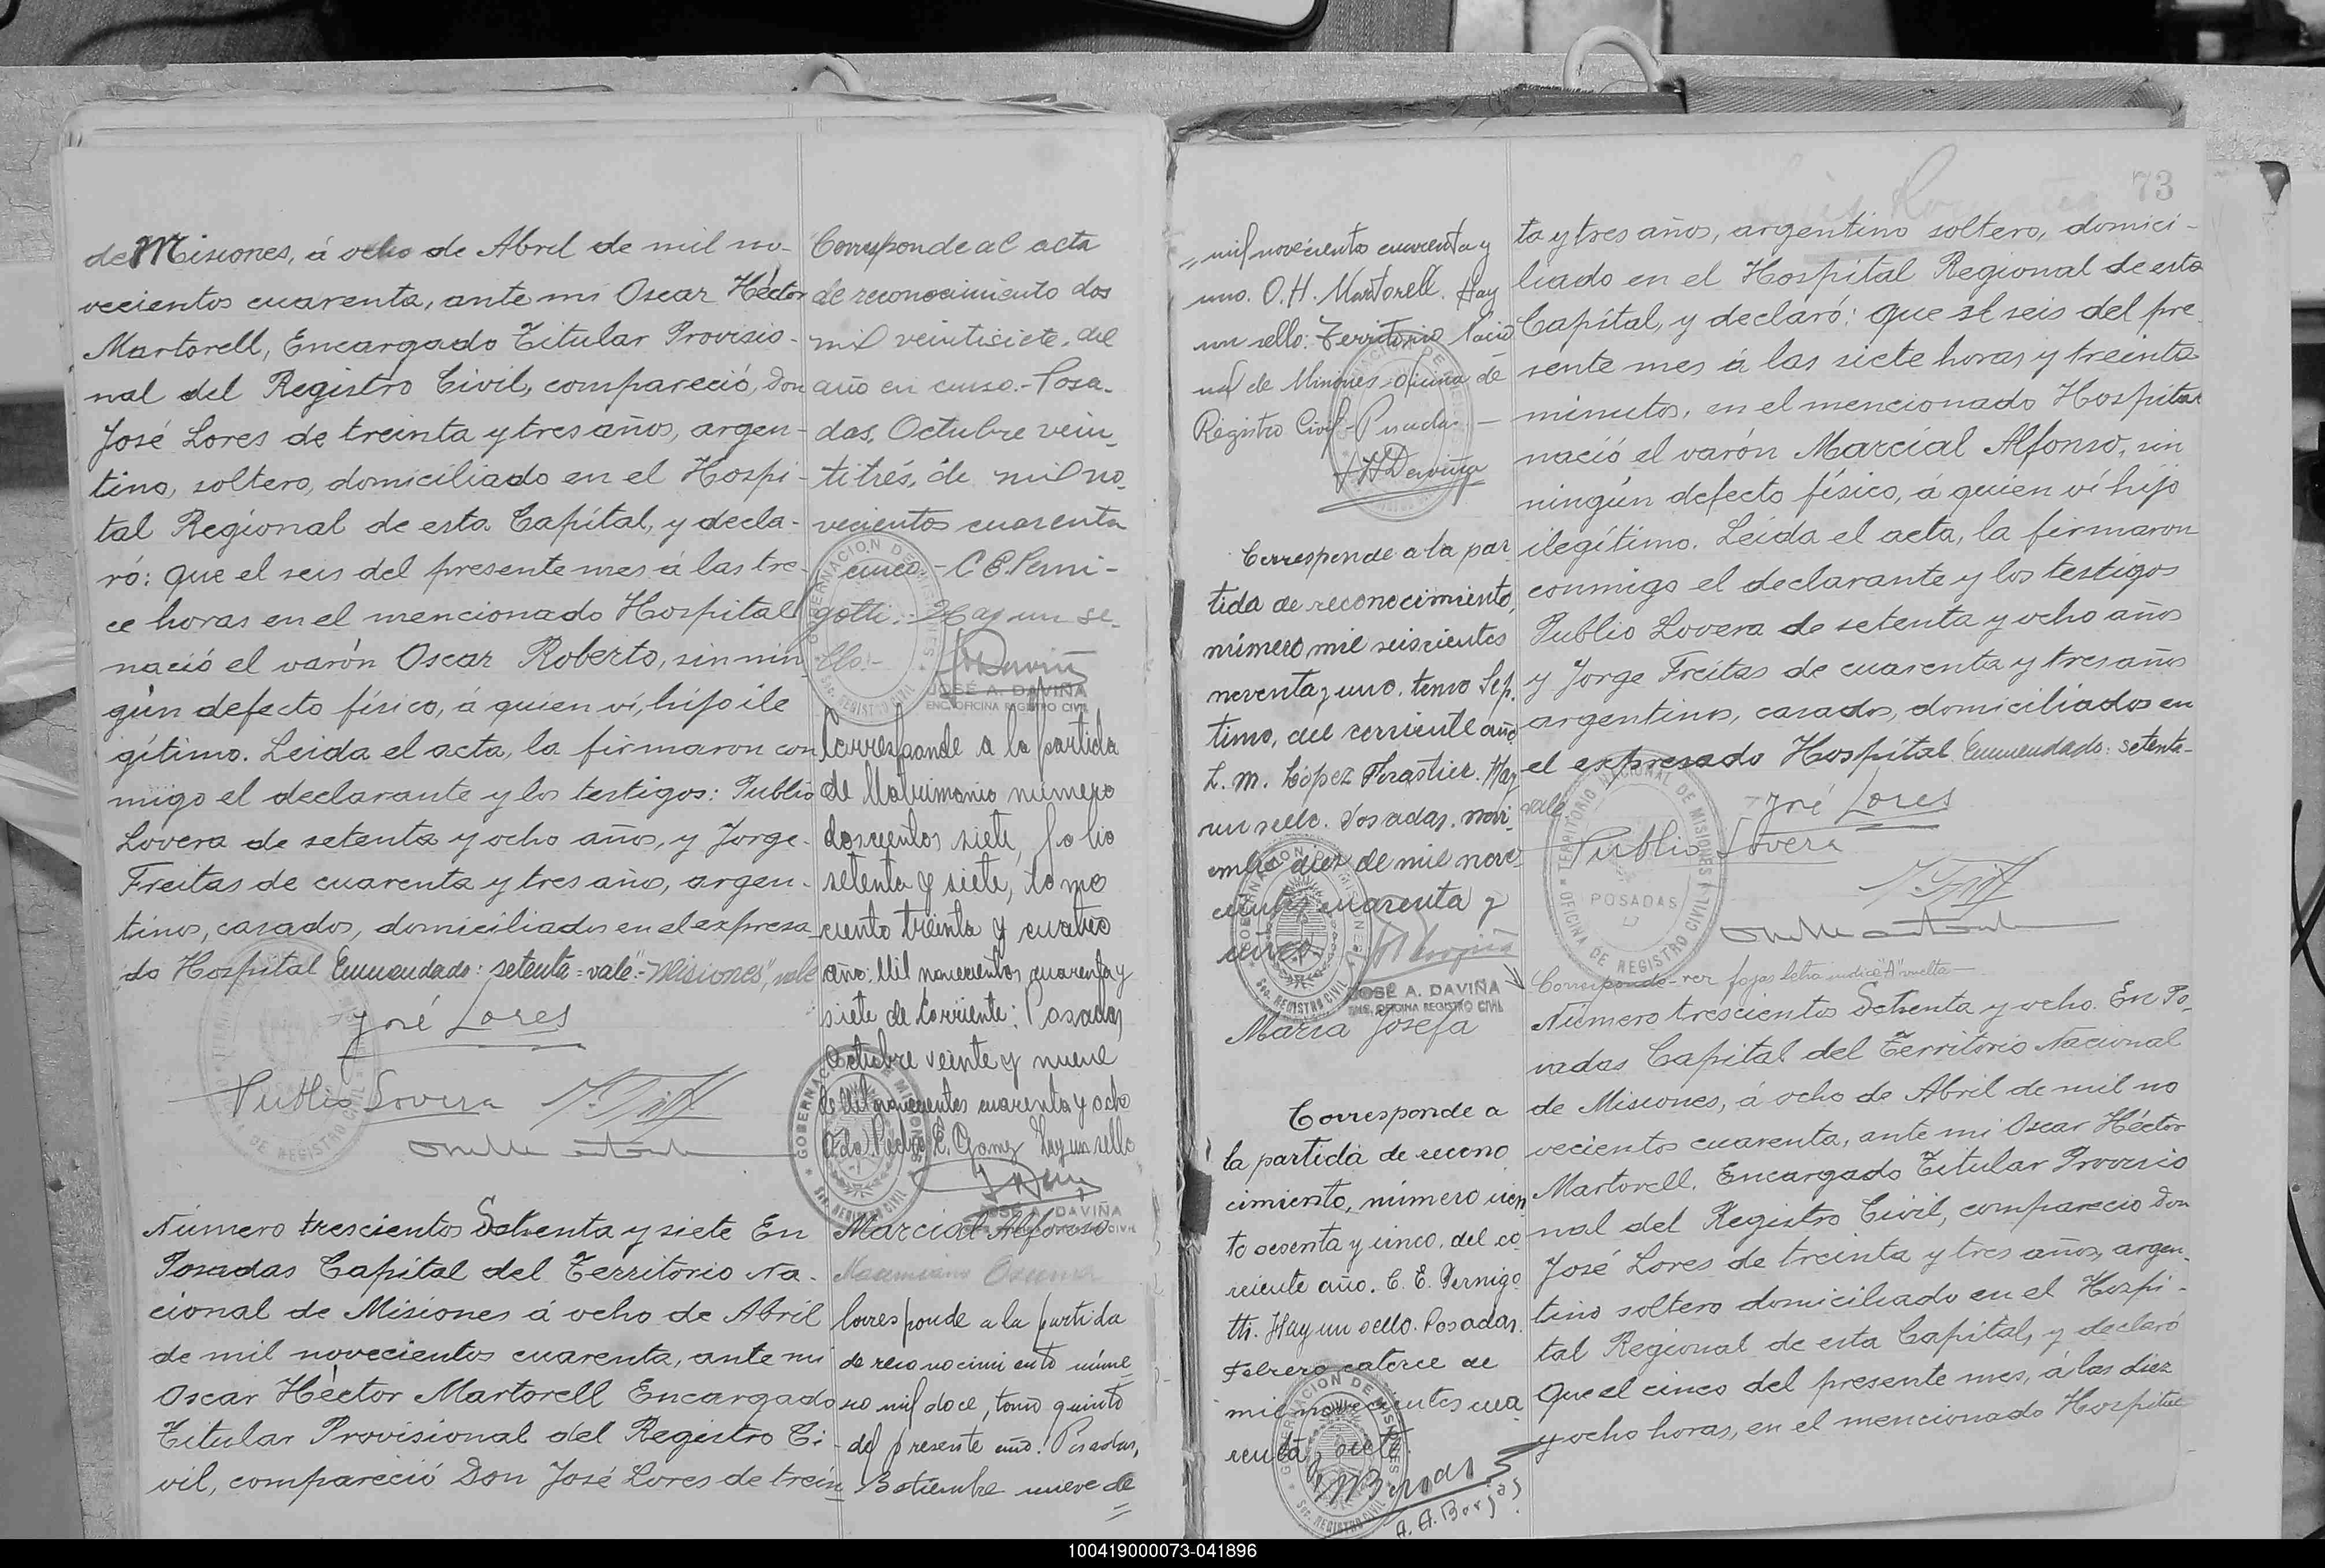 de Misiones, á ocho de Abril de mil no-
vecientos cuarenta, ante mi Oscar Héctor
Martorell, Encargado Titular Provisio-
nal del Registro Civil, compareció, Don
José Lores de treinta y tres años, argen-
tino, soltero, domiciliado en el Hospi-
tal Regional de esta Capital, y decla-
ró: que el seis del presente mes á las tre-
ce horas en el mencionado Hospital
nació el varón Oscar Roberto, sin nin
gún defecto físico, á quien vi, hijo ile
gítimo. Leida el acta, la firmaron con
migo el declarante y los testigos: Publio
Lovera de setenta y ocho años, y Jorge
Freitas de cuarenta y tres años, argen-
tinos, casados, domiciliados en el expresa
do Hospital Enmendado: setenta=vale."-Misiones", vale
José Lores
Publio Lovera
Número trescientos Setenta y siete En
Posadas Capital del Territorio Na-
cional de Misiones á ocho de Abril
de mil novecientos cuarenta, ante mi
Oscar Héctor Martorell Encargado
Titular Provisional del Registro Ci-
vil, compareció Don José Lores de trein
Corresponde al acta
de reconocimiento dos
mil veintisiete, del
año en curso.- Posa-
das, Octubre vein-
titrés, de mil no-
vecientos cuarenta
cinco - C E. Perni-
gotti.- Hay un se-
llo.-
JOSÉ A. DAVIÑA
ENC. OFICINA REGISTRO CIVIL
Corresponde a la partida
de Matrimonio número
doscientos siete, folio
setenta y siete, tomo
ciento treinta y cuatro
año. Mil novecientos cuarenta y
siete de Corriente: Posadas
Octubre veinte y nueve
de Mil novecientos cuarenta y ocho
Pedro E. Gomez Hay un sello
GOBERNACION DE MISIONES
Sec. REGISTRO CIVIL
JOSE A. DAVIÑA
Marcial Alfonso
Corresponde a la partida
de reconocimiento núme
ro mil doce, tomo quinto
del presente año. Posadas,
Setiembre nueve de
mil novecientos cuarenta y
uno. O.H. Martorell. Hay
un sello: Territorio Nacio
nal de Misiones-Oficina de
Registro Civil-Posadas-
Corresponde a la par
tida de reconocimiento,
número mil seiscientos
noventa y uno, tomo Sép.
timo, del corriente año
L. M. López Forastier. Hay
un sello. Posadas. novi-
embre diez de mil nove
cientos cuarenta y
cinco
GOBERNACION DE MISIONES
Sec. REGISTRO CIVIL
JOSE A. DAVIÑA
ENC. OFICINA REGISTRO CIVIL
Maria Josefa
Corresponde a
la partida de recono
cimiento, número cien
to sesenta y cinco, del co
rriente año. C. E. Pernigo
tti. Hay un sello. Posadas.
Febrero catorce de
mil novecientos cua
renta y siete.
GOBERNACION DE MISIONES
Sec. REGISTRO CIVIL
A. A. Borjas
73
ta y tres años, argentino soltero, domici-
liado en el Hospital Regional de esta
Capital, y declaró: que el seis del pre
sente mes á las siete horas y treinta
minutos, en el mencionado Hospital
nació el varón Marcial Alfonso, sin
ningún defecto físico, á quien ví hijo
ilegítimo. Leida el acta, la firmaron
conmigo el declarante y los testigos
Publio Lovera de setenta y ocho años
y Jorge Freitas de cuarenta y tres años
argentinos, casados, domiciliados en
el expresado Hospital Enmendado: setenta-
vale
José Lores
Publio Lovera
TERRITORIO NACIONAL DE MISIONES
POSADAS
OFICINA DE REGISTRO CIVIL
Corresponde-ver fojas letra indice "A" vuelta-
Número trescientos Setenta y ocho. En Po-
sadas Capital del Territorio Nacional
de Misiones, á ocho de Abril de mil no
vecientos cuarenta, ante mi Oscar Héctor
Martorell. Encargado Titular Provisio
nal del Registro Civil, compareció Don
José Lores de treinta y tres años, argen-
tino soltero domiciliado en el Hospi-
tal Regional de esta Capital, y declaró
Que el cinco del presente mes, á las diez
y ocho horas, en el mencionado Hospital
100419000073-041896